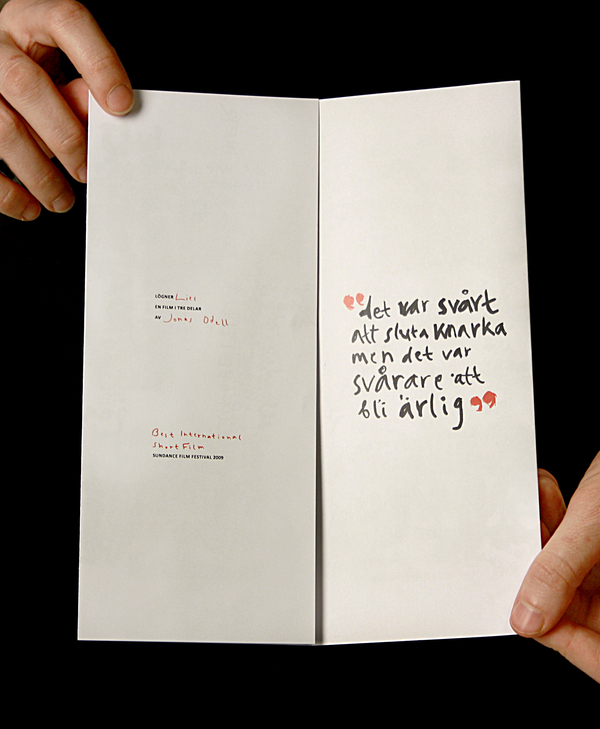 LÖGNER Lies
EN FILM I TRE DELAR
AV Jonas Odell
Best International
Short Film
SUNDANCE FILM FESTIVAL 2009
“det var svårt
att sluta knarka
men det var
svårare att
bli ärlig”